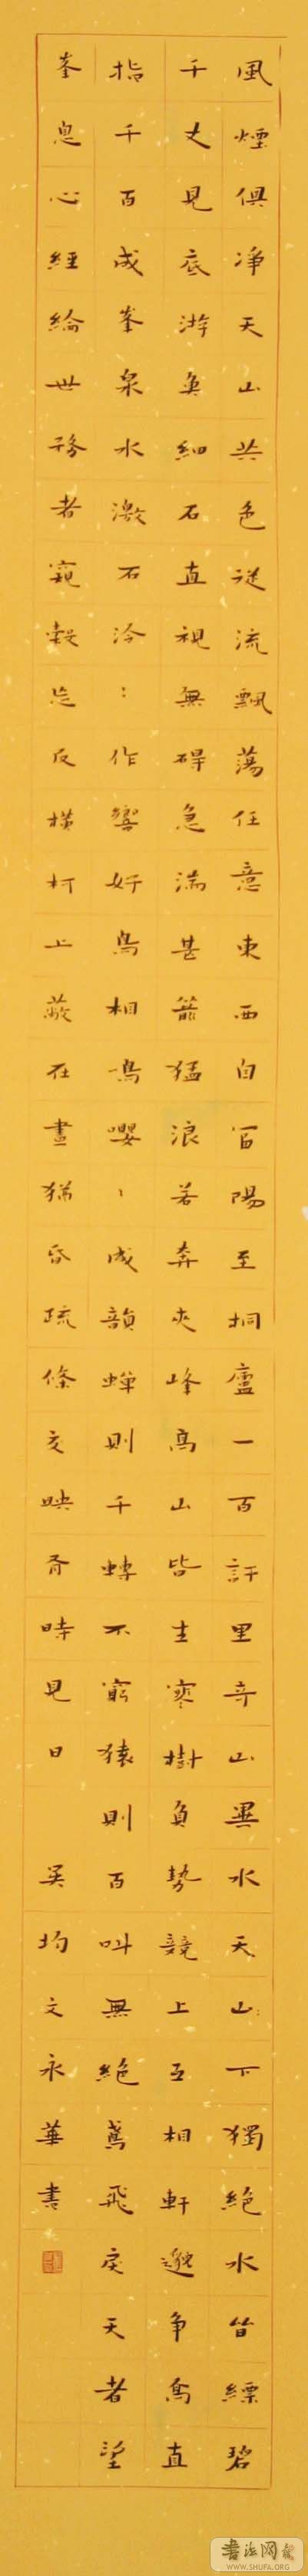 風煙俱淨天山共色從流飄蕩任意東西自富陽至桐廬一百許里奇山異水天山:下獨絕水皆縹碧
千丈見底游魚細石直視無碍急湍甚箭猛浪若奔夾峰高山皆生寒樹負勢競上互相軒邈爭高直
指千百成峯泉水激石泠:作響好鳥相鳴嚶:成韻蟬則千轉不窮猿則百叫無絕鳶飛戾天者望
峯息心經綸世務者窺穀忘反橫柯上蔽在晝猶昏疏條交映有時見日 吳均文永華書
书法网
WWW.SHUFA.ORG